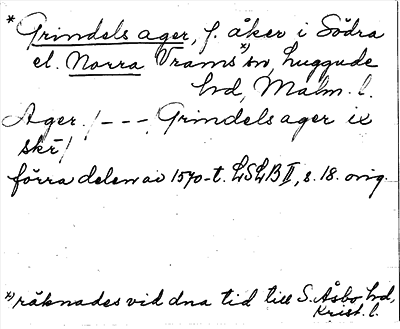 * Grindels ager, f. åker i Södra
el. Norra Vrams *) sn, Luggude
hd, Malm. l.
Ager /--- Grindelsager ix
skr/
förra delen av 1570-t. LSLB II, s. 18. orig.
*) räknades vid dna tid till S. Åsbo hd,
Krist. l.